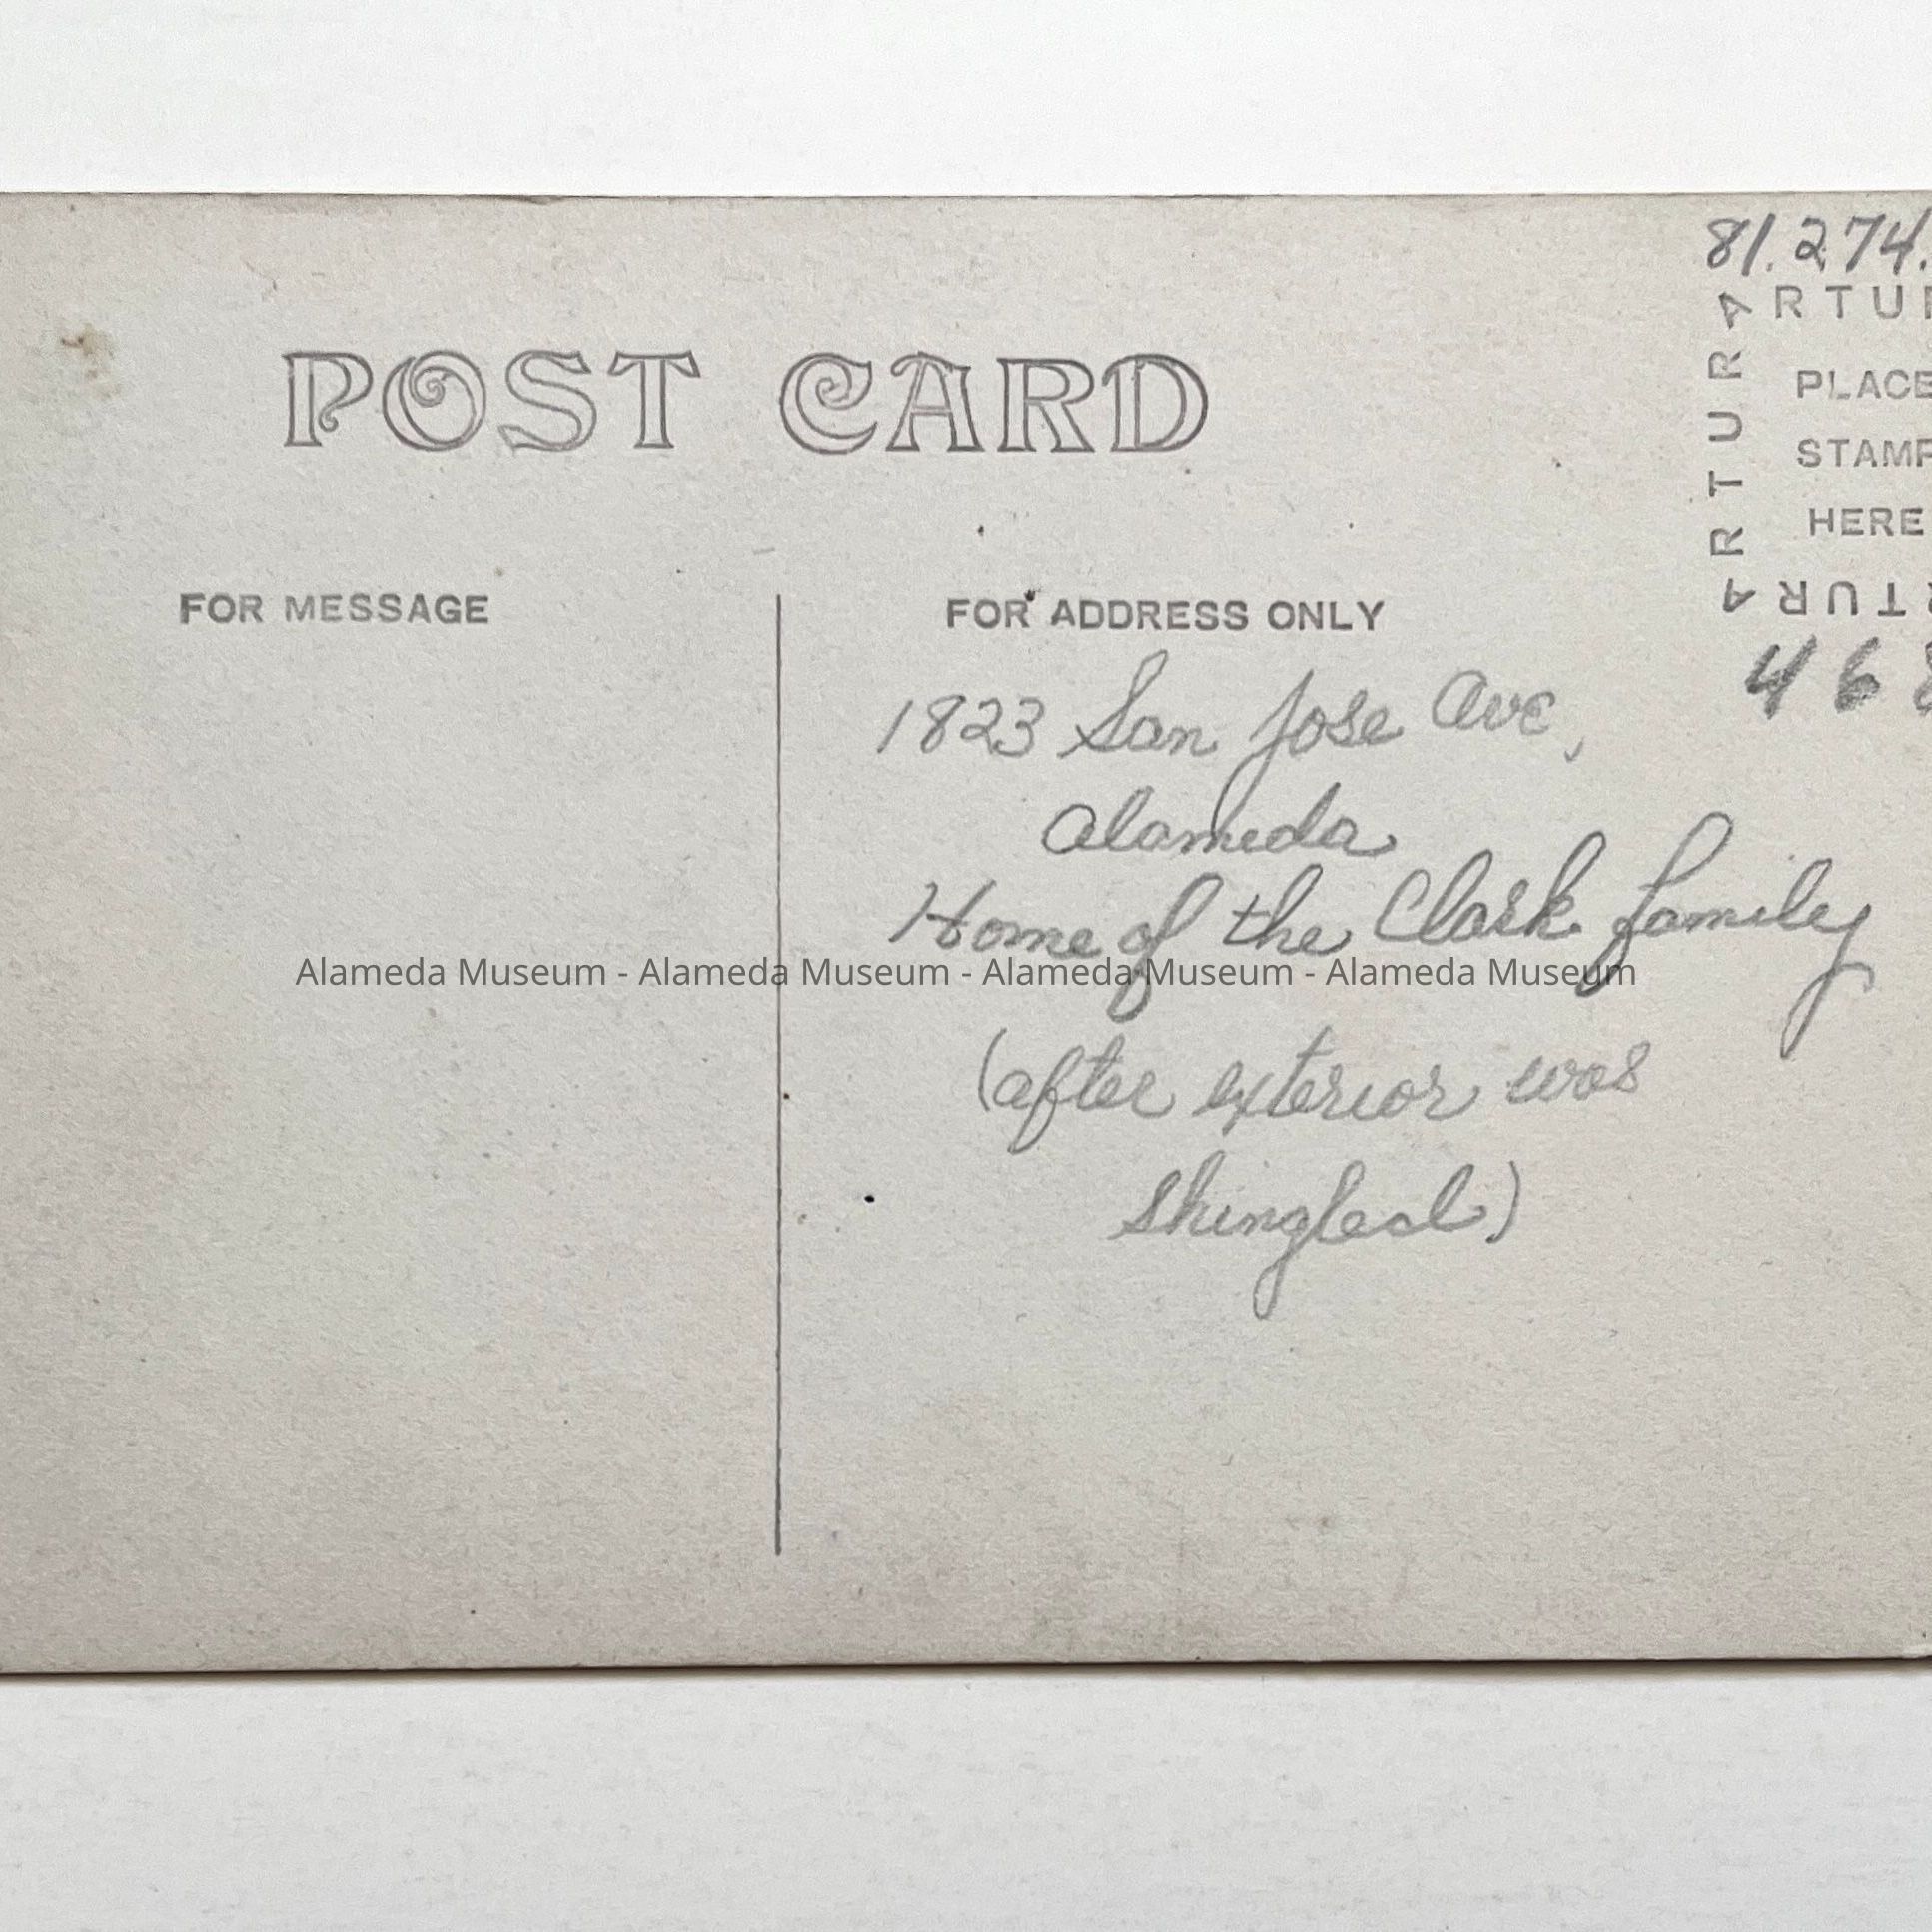 81.274.
POST CARD
ARTURA
PLACE
STAMP
HERE
ARTURA
FOR MESSAGE
FOR ADDRESS ONLY
468
1823 San Jose Ave,
Alameda
Home of the Clark family
Alameda Museum - Alameda Museum - Alameda Museum - Alameda Museum
(after exterior was
shingled)